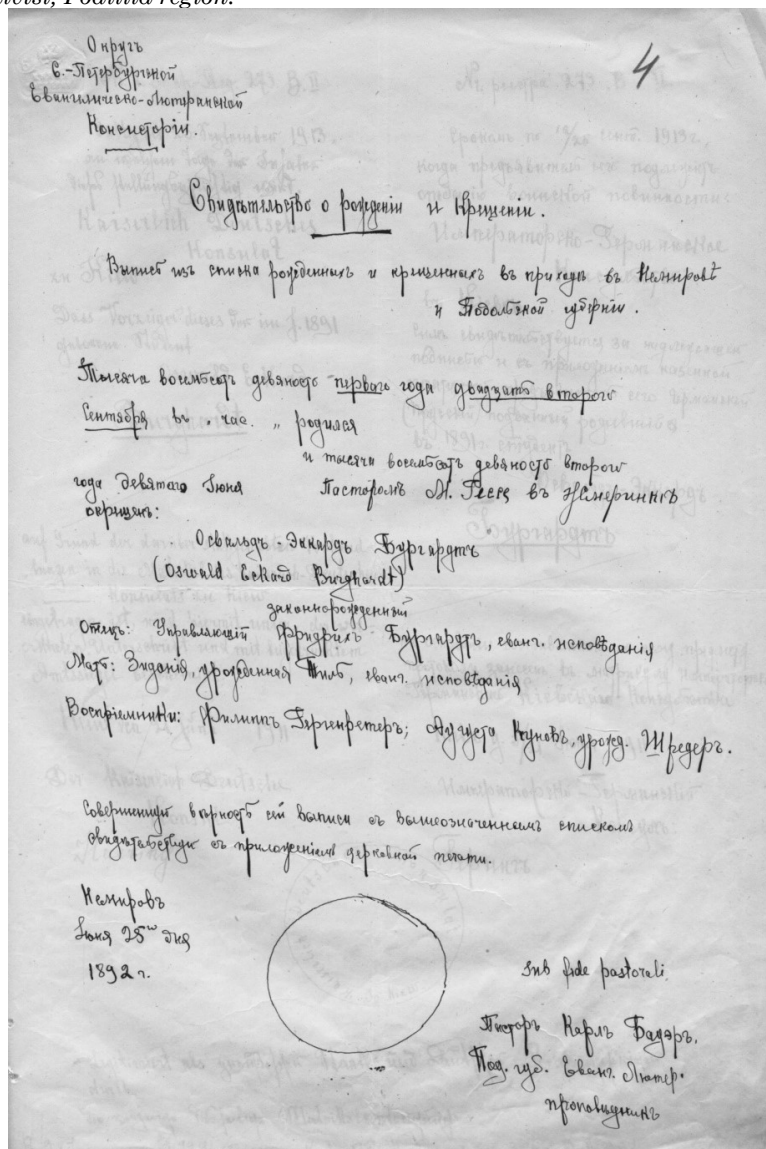 Podillia region.
4
Округъ
С.-Петербургской
Евангелическо-Лютеранской
Консисторіи.
Свидѣтельство о рожденіи и крещеніи.
Выпись изъ списка рожденныхъ и крещенныхъ въ приходѣ въ Немировѣ
и Подольской губерніи.
Тысяча восемьсотъ девяносто перваго года двадцать второго
Сентября въ . час. „ родился
и тысяча восемьсотъ девяносто второго
года девятаго Іюня Пасторомъ М. въ Жмеринкѣ
окрещенъ:
Освальдъ-Эккардъ Бургардтъ
(Oswald Eckard Burghardt)
законнорожденный
Отецъ: Управляющій Фридрихъ Бургардтъ, еванг. исповѣданія
Мать: Зидонія, урожденная Тиль, еванг. исповѣданія
Воспріемники: Филиппъ Гергенретеръ; Августа Куновъ, урожд. Шредеръ.
Совершенную вѣрность сей выписи съ вышеозначеннымъ спискомъ
свидѣтельствую съ приложеніемъ церковной печати.
Немировъ
Іюня 25го дня
1892 г.
Sub fide pastorali.
Пасторъ Карлъ Бауэръ.
Под. губ. Еванг. Лютер.
проповѣдникъ